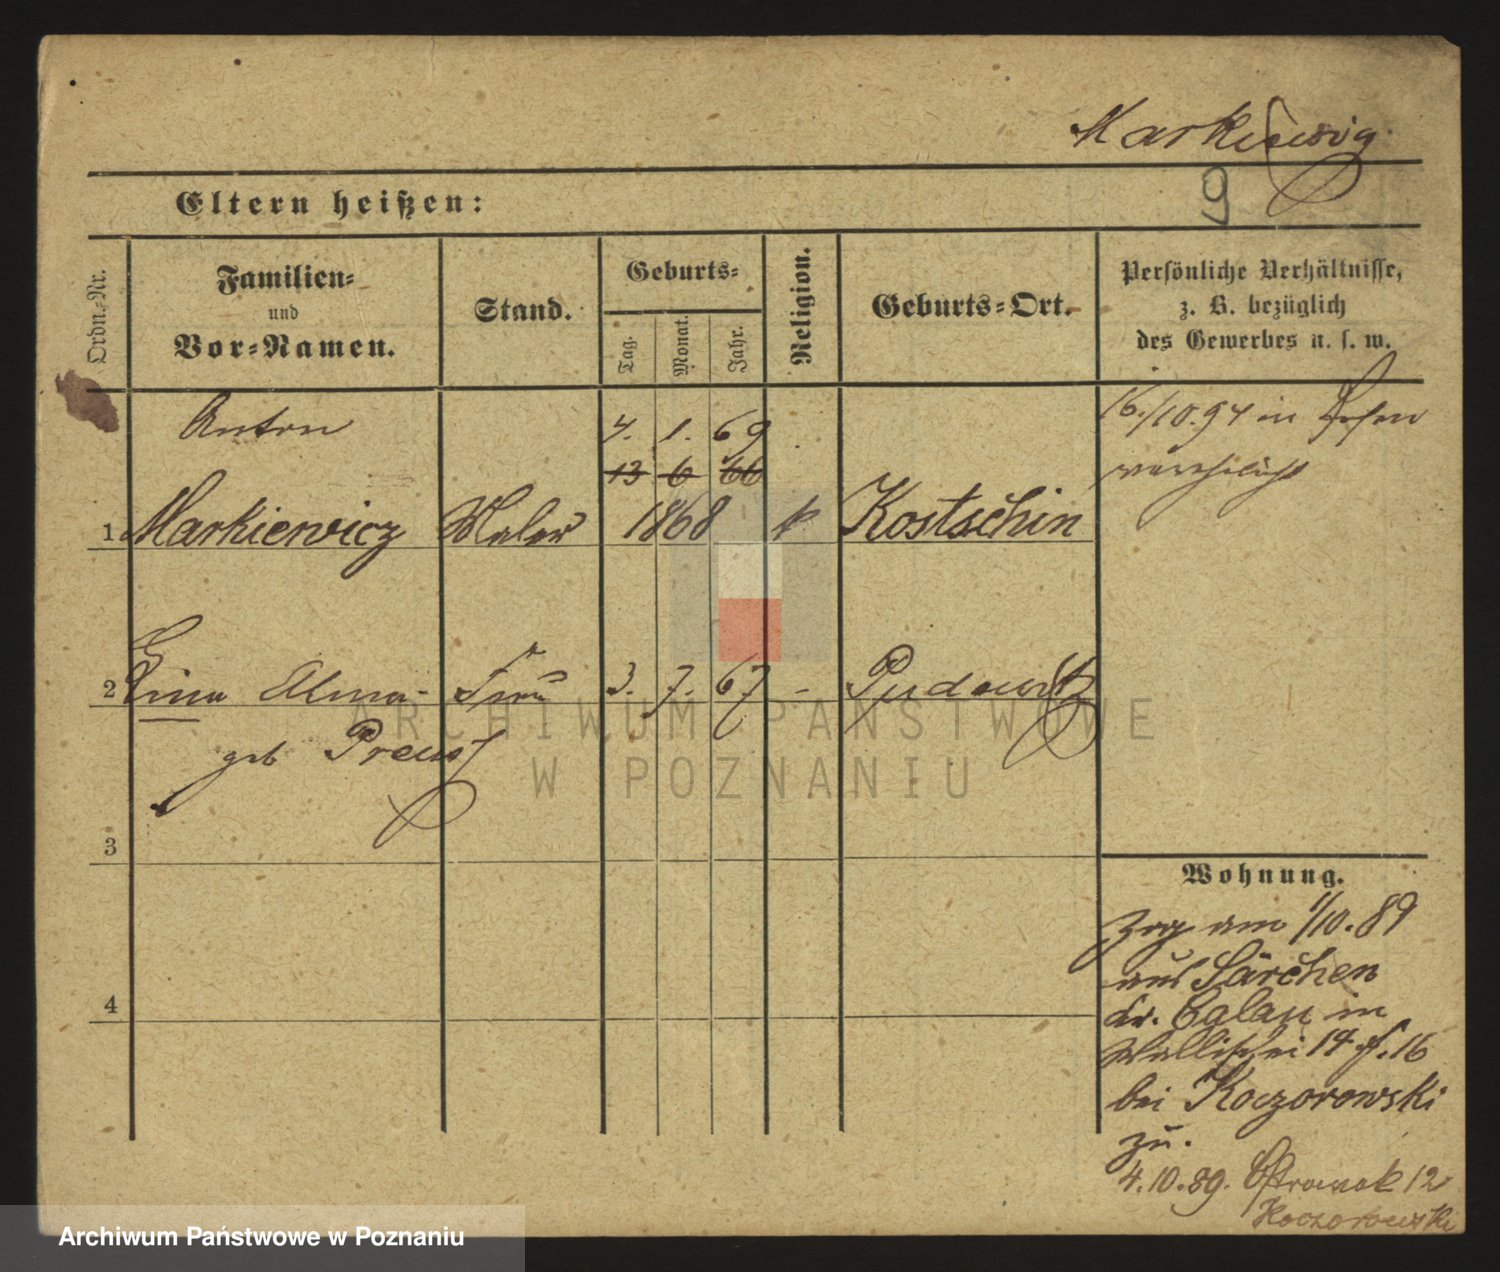 Markiewicz
9
Eltern heißen:
Ordn.-Nr.
Familien-
und
Vor-Namen.
Stand.
Geburts-
Tag.
Monat.
Jahr.
Religion.
Geburts-Ort.
Persönliche Verhältnisse,
z. B. bezüglich
des Gewerbes u. s. w.
Anton 4. 1. 69
13 6 66
1 Markiewicz Maler 1868 k Kostschin
16./10.94 in Posen
verehelicht
2 Alma Frau 3. 7. 67 - Pudewitz
geb Preuss
3
4
Wohnung.
Zog am 1/10.89
aus Särchen
Kr. in
Wallischei 14 16
bei Koczorowski
zu.
4.10.89. Ostrowek 12
Koczorowski
ARCHIWUM PAŃSTWOWE
W POZNANIU
Archiwum Państwowe w Poznaniu